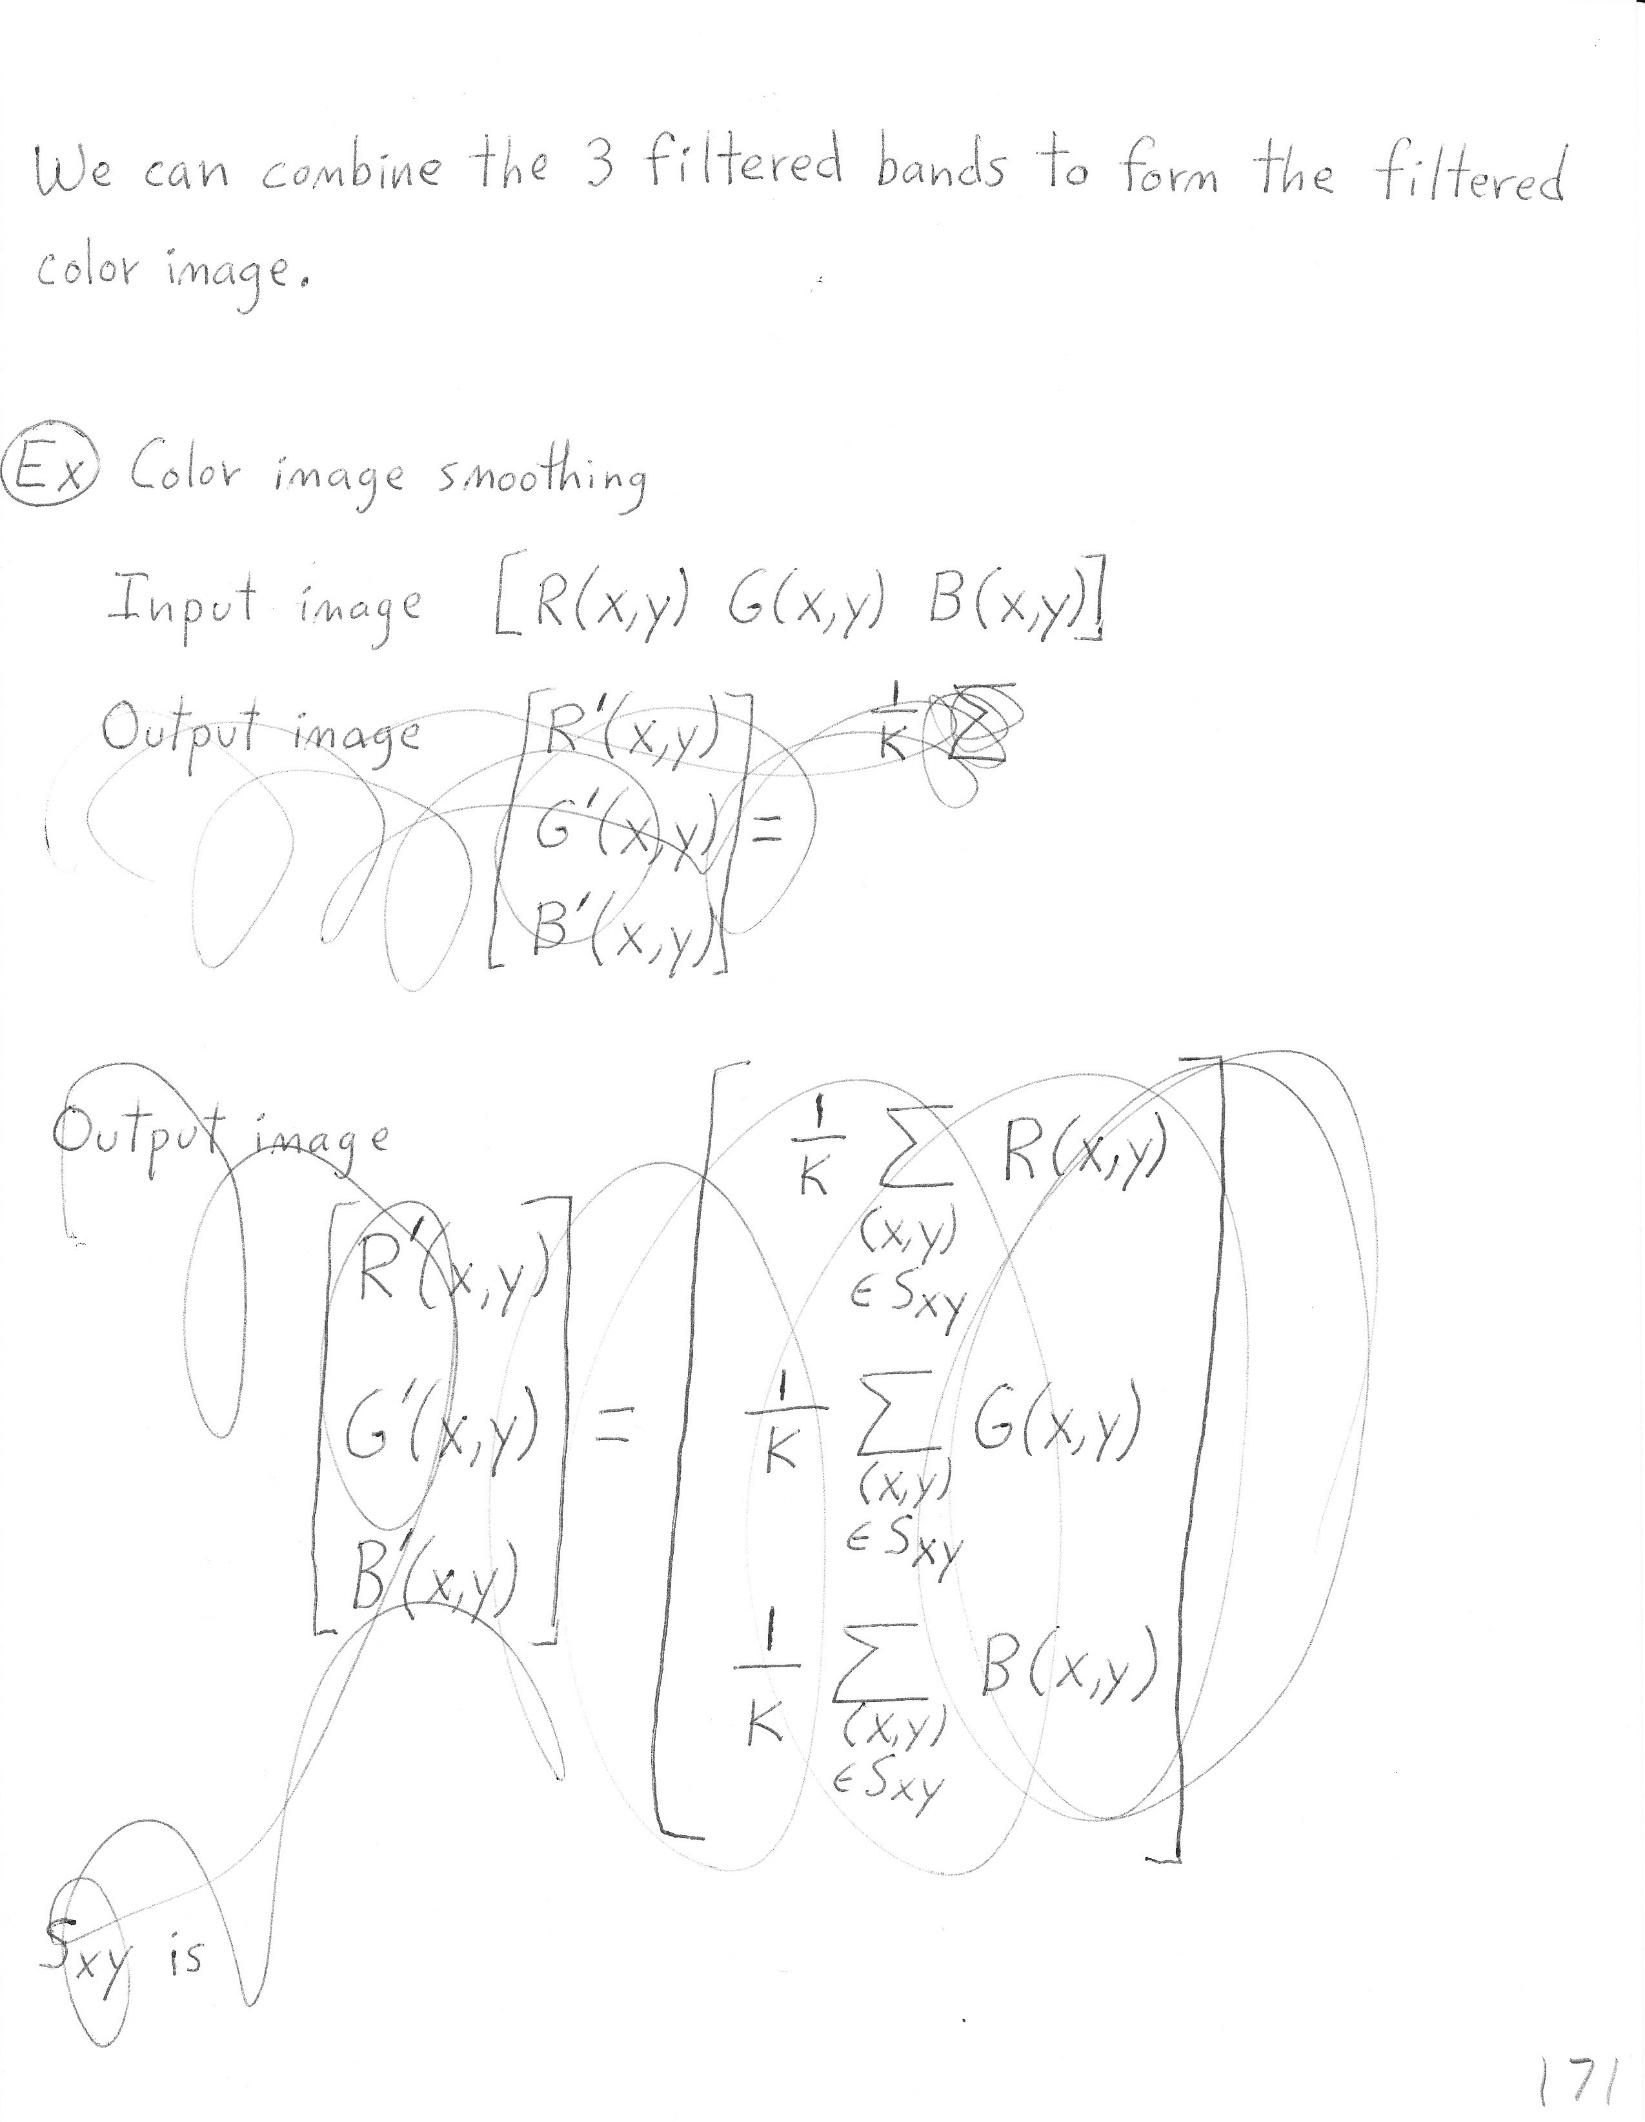 We can combine the 3 filtered bands to form the filtered
color image.
Ex Color image smoothing
Input image [R(x,y) G(x,y) B(x,y)]
Output image [R'(x,y) G'(x,y) B'(x,y)] = 1/K Σ
Output image
[R'(x,y) G'(x,y) B'(x,y)] = [
1/K Σ R(x,y)
(x,y)
∈ Sxy
1/K Σ G(x,y)
(x,y)
∈ Sxy
1/K Σ B(x,y)
(x,y)
∈ Sxy
]
Sxy is
171